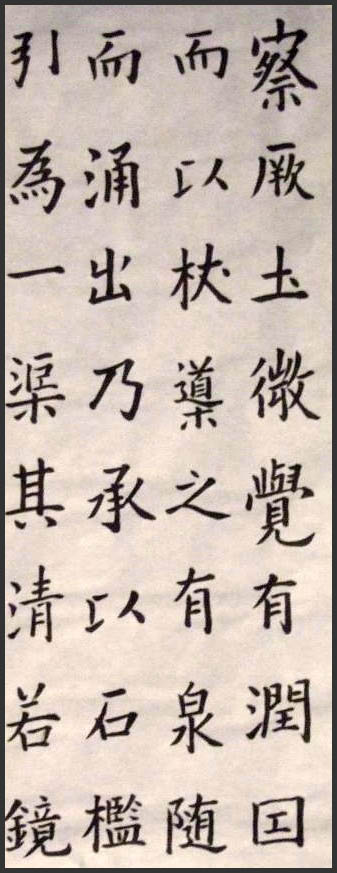 察厥圡微覺有潤囙
而以杖導之有泉随
而涌出乃承以石檻
引為一渠其清若鏡